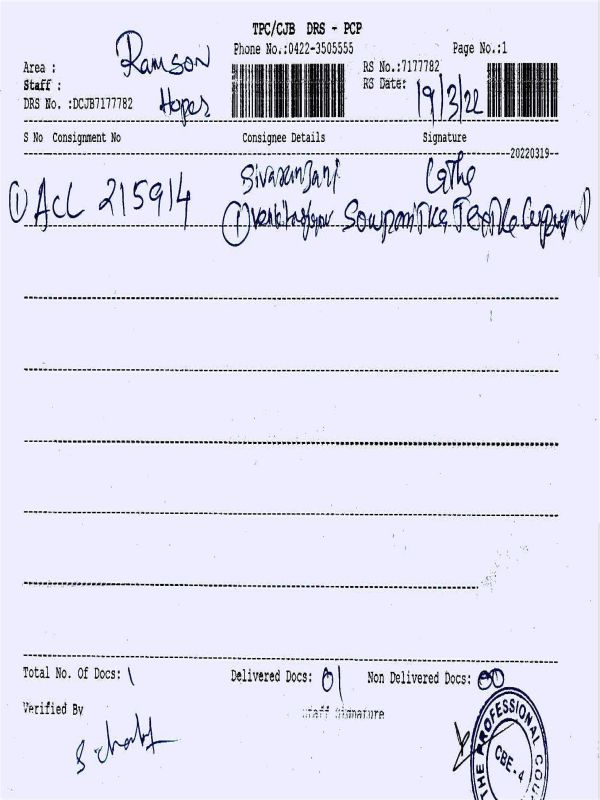 TPC/CJB DRS - PCP
Phone No.:0422-3505555 Page No.:1
Area : Ramson RS No.:7177782
Staff : RS Date: 19/3/22
DRS No. :DCJB7177782 Hopes
S No Consignment No Consignee Details Signature
20220319
① ACC 215914 Sivaranjani
①
Total No. Of Docs: 1 Delivered Docs: 01 Non Delivered Docs: 00
Verified By Staff Signature
THE PROFESSIONAL COU
CBE-4